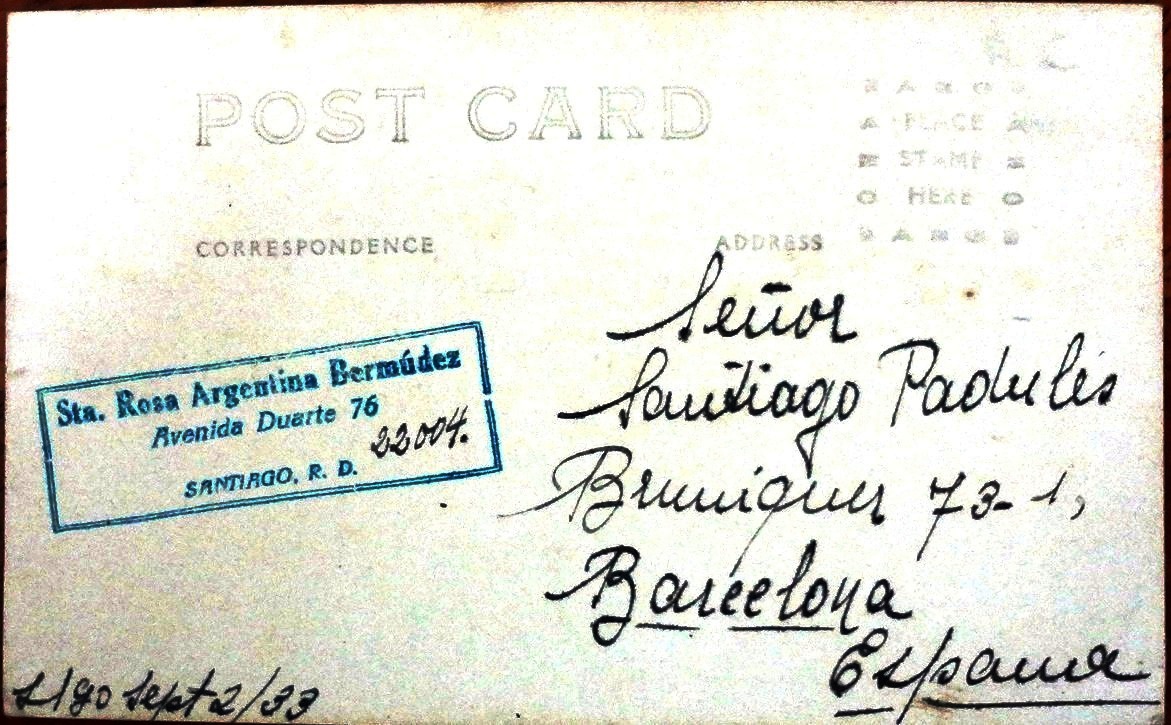 POST CARD
AZO
PLACE
STAMP
HERE
CORRESPONDENCE
ADDRESS
Señor
Santiago Padulés
Bruniquer 73-1,
Barcelona
España
Sta. Rosa Argentina Bermúdez
Avenida Duarte 76
22004.
SANTIAGO, R. D.
Stgo Sept 2/33